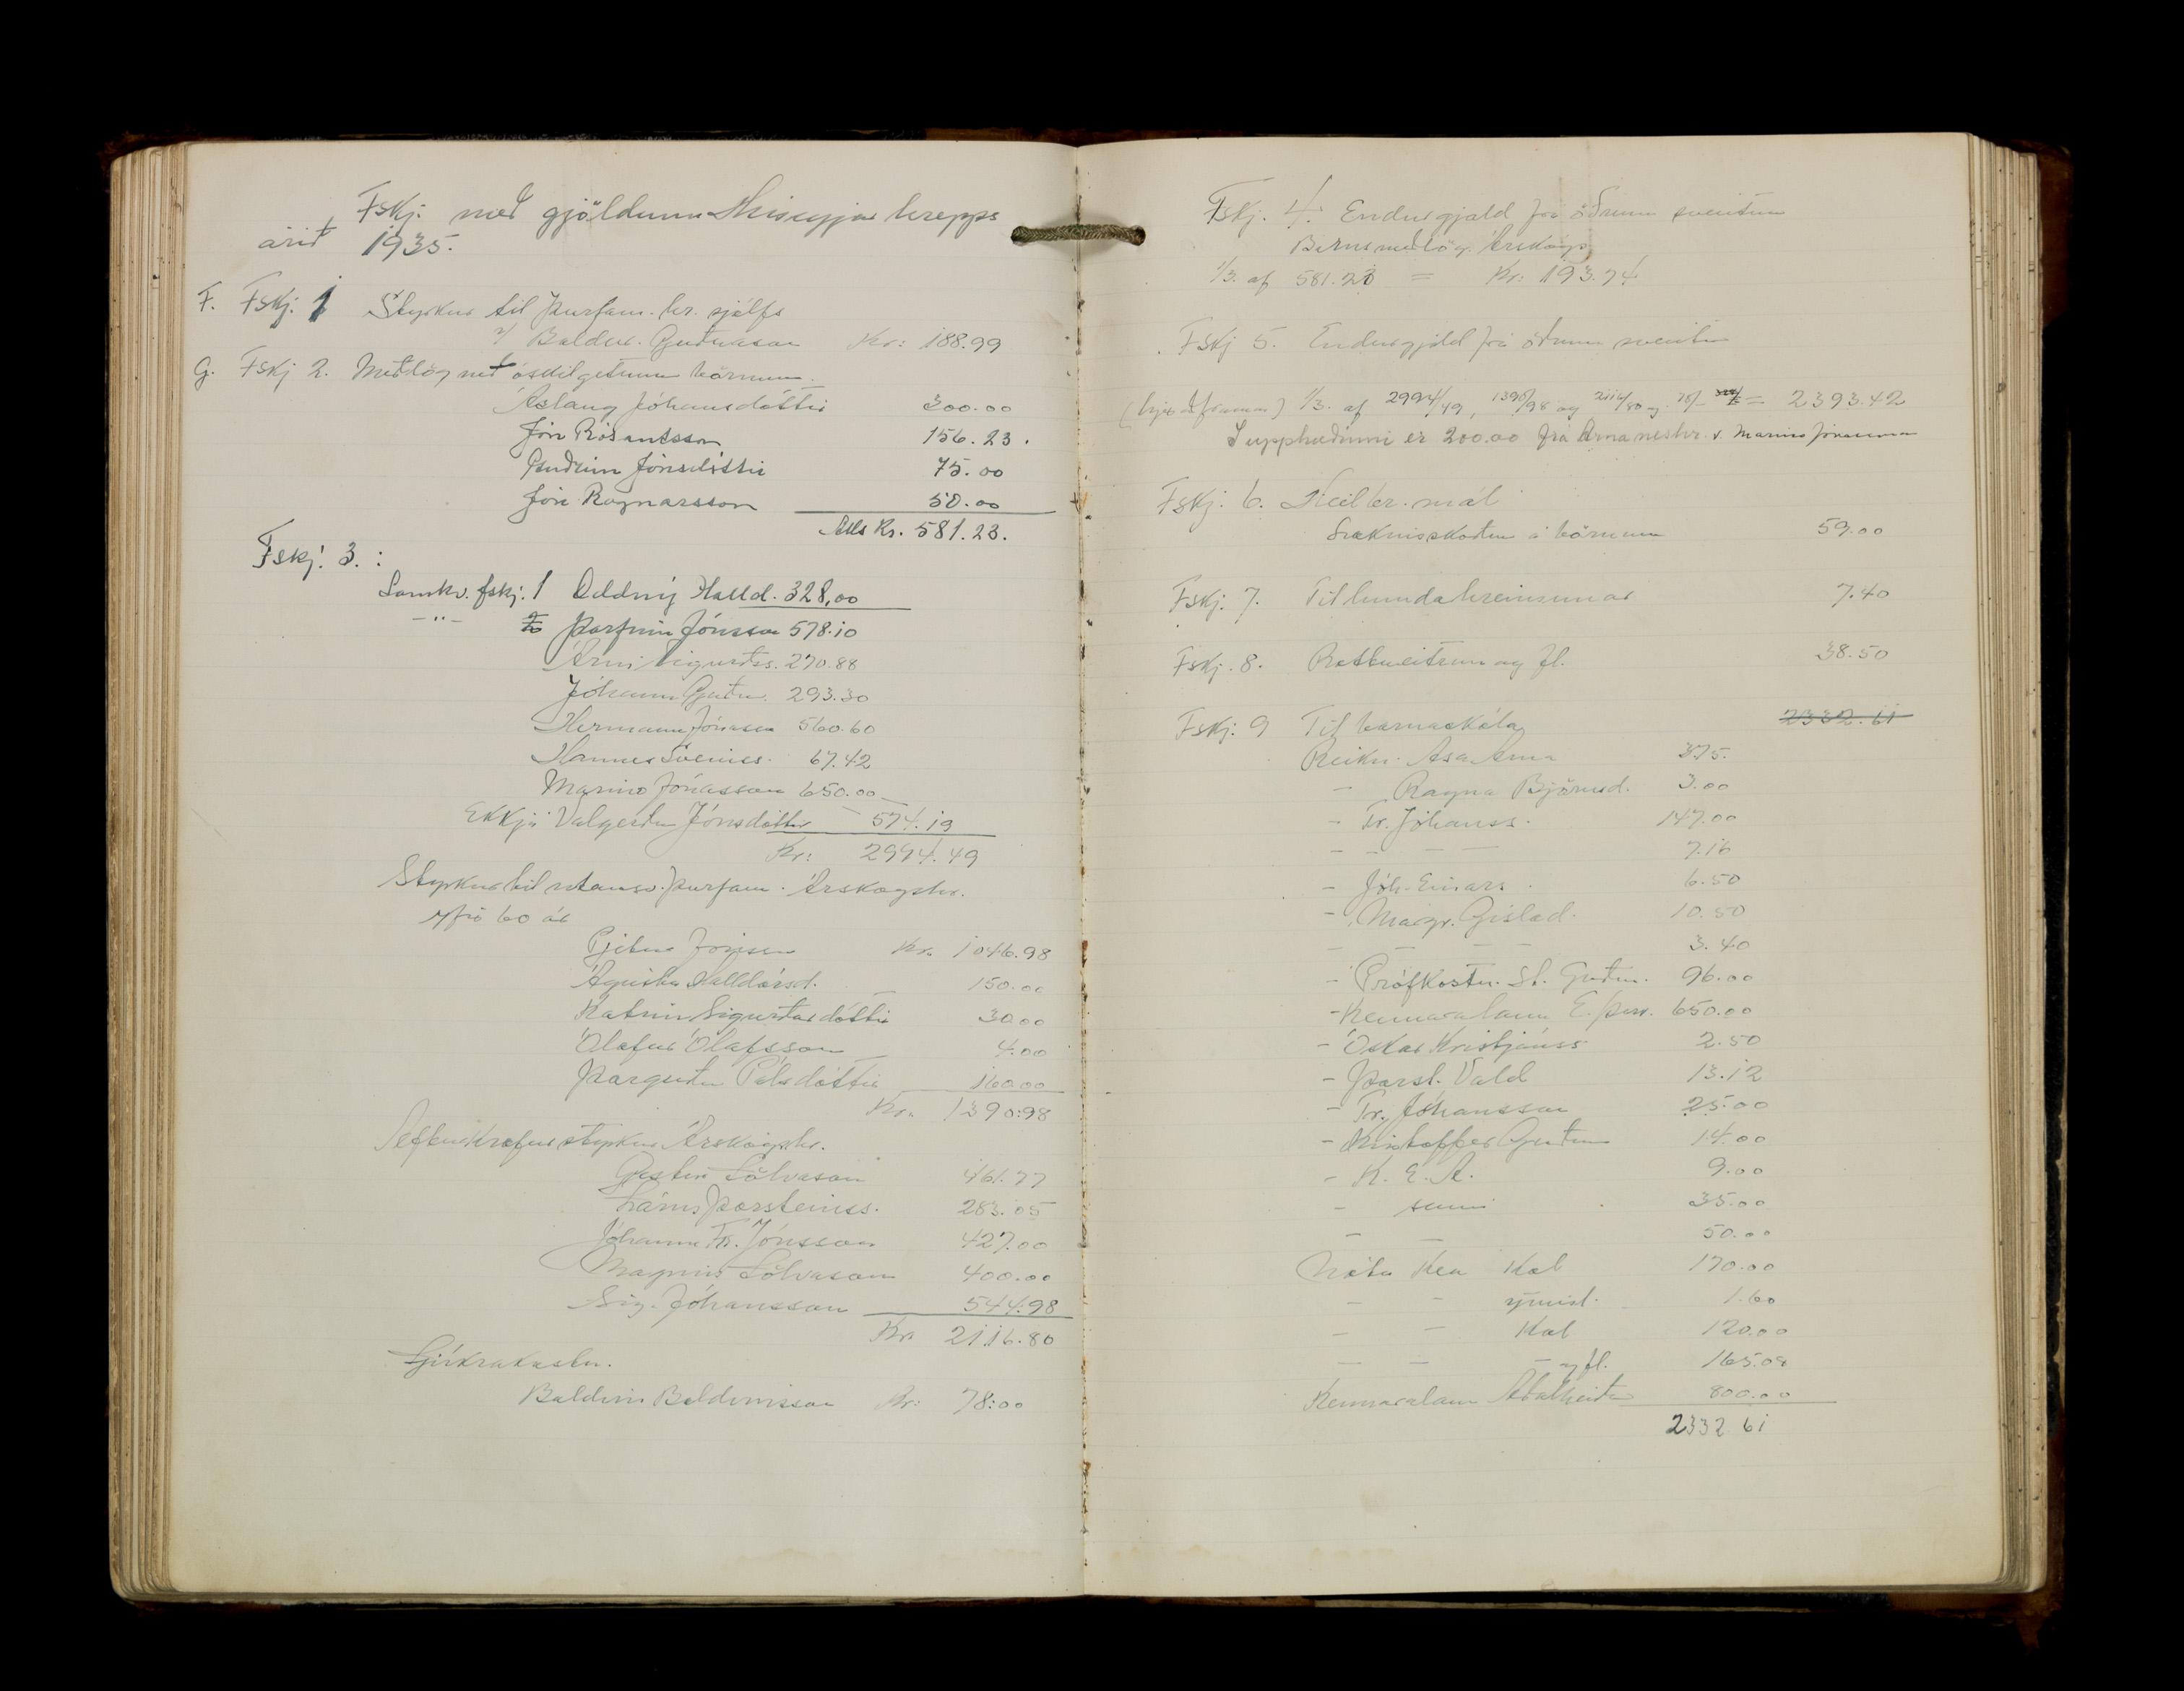 Fskj. með gjöldum Hríseyjar hrepps
árið 1935.
F. Fskj: 1 Styrkur til þurfam. hr. sjálfs
v/ Baldur Guðnason Kr: 188.99
G. Fskj 2. Meðlög með óskilgetnum börnum.
Áslaug Jóhannsdóttir 300.00
Jón Rósantsson 156.23.
Guðrún Jónsdóttir 75.00
Jón Ragnarsson 50.00
Alls Kr. 581.23.
Fskj. 3. :
Samkv. fskj. 1 Oddný Halld. 328,00
-"- Þorfinn Jónsson 578.10
Árni Sigurðs. 270.88
Jóhann Guðm. 293.30
Hermann Jónasson 560.60
Hannes Sveinss. 67.42
Marino Jónasson 650.00
Ekkja Valgerður Jónsdóttir 574.19
Kr: 2994.49
Styrkur til utansv. þurfam. Árskogshr.
yfir 60 ár
Pjetur Jonsson Kr. 1046.98
Ágústa Halldórsd. 150.00
Katrin Sigurðardóttir 30.00
Ólafur Ólafsson 4.00
Þorgerður Pálsdóttir 160.00
Kr. 1390.98
Afturkræfur styrkur Árskógshr.
Gestur Sölvason 461.77
Lárus Þorsteinss. 283.05
Jóhann Fr. Jónsson 427.00
Magnús Sölvason 400.00
Sig. Jóhansson 544.98
Kr 2116.80
Sjúkrakostn.
Baldvin Baldvinsson Kr: 78:00
Fskj. 4. Endurgjald frá öðrum sveitum
Barnsmeðlög. Árskógs
1/3. af 581.23 = Kr: 193.74
Fskj 5. Endurgjald frá öðrum sveitum
1/3. af 2994/49, 1390/98 og 2116/80 og 78/- = 2393.42
I upphæðinni er 200.00 frá Arnarneshr. v. Marino Jónasson
Fskj. 6. Heilbr. mál
Læknisskoðun á börnum 59.00
Fskj. 7. Til hundahreinsunar 7.40
Fskj. 8. Rottueitrun og fl. 38.50
Fskj: 9 Til barnaskóla 2332.61
Reikn. Asa Arna 375.
- Ragna Björnsd. 3.00
- Fr. Jóhanss. 147.00
- - - - 7.16
- Jóh. Einars. 6.50
- Magr. Gíslad. 10.50
- - - - 3.40
- Prófkostn. St. Guðm. 96.00
- Kennaralaun E. Þorv. 650.00
- Óskar Kristjánss 2.50
- Þorst. Vald 13.12
- Fr. Jóhansson 25.00
- Kristoffer Guðm 14.00
- K. E. A. 9.00
- sami 35.00
- - 50.00
Nóta Kea Kol 170.00
- - ýmisl. 1.60
- - Kol 120.00
- - - og fl. 165.08
Kennaralaun Aðalheiður 800.00
2332 61